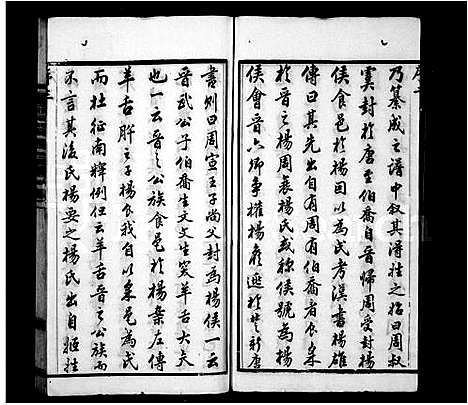 乃纂成之譜中叙其得姓之始曰周叔
虞封於唐至伯喬自晉歸周受封楊
侯食邑於楊因以為氏考漢書楊雄
傳曰其先出自周有伯喬者食采
於晉之楊周衰楊氏或稱侯號為楊
侯會晉六卿爭權楊侯逃於楚新唐
書則曰周宣王子尚父封為楊侯一云
晉武公子伯喬生文文生突羊舌大夫
也一云晉之公族食邑於楊案左傳
羊舌肸之子楊食我自以采邑為氏
而杜征南釋例但云羊舌晉之公族而
不言其後氏楊要之楊氏出自姬姓